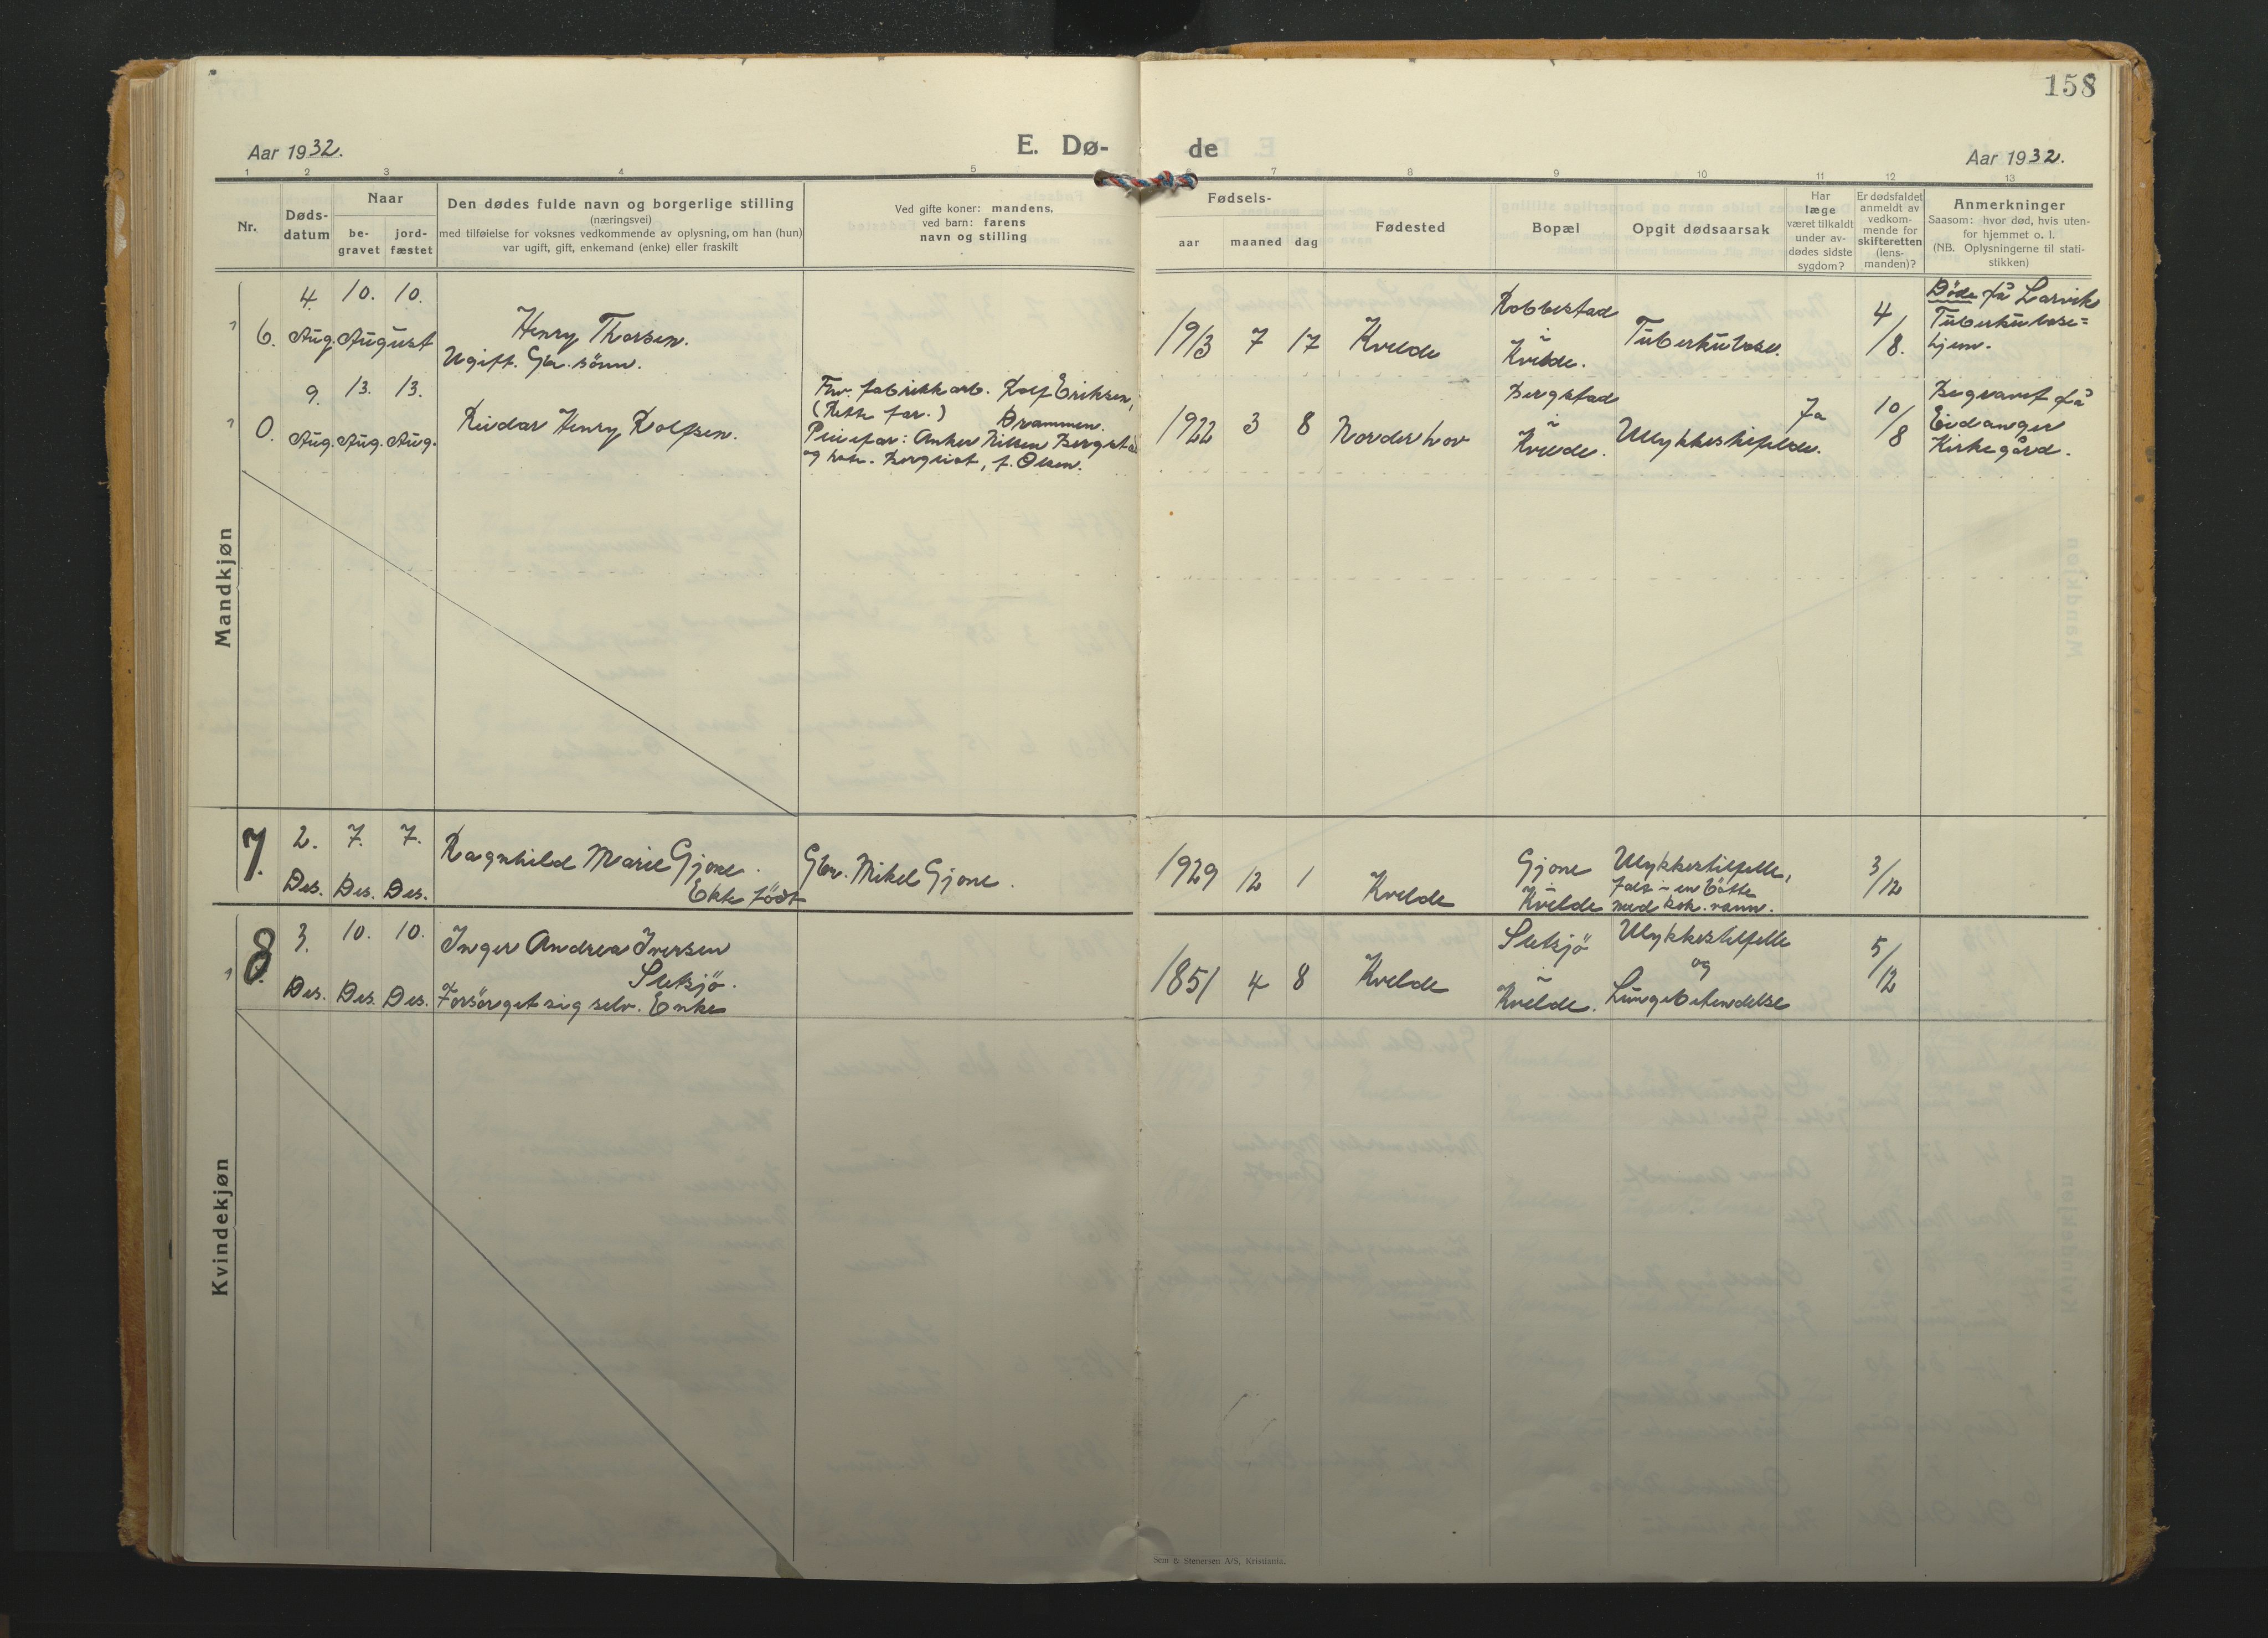 158
Aar 1932.
E. Dø-
de
Aar 1932.
1 2 3 4 5 7 8 9 10 11 12 13
Nr.
Døds-
datum
Naar
be-
gravet
jord-
fæstet
Den dødes fulde navn og borgerlige stilling
(næringsvei)
med tilføielse for voksnes vedkommende av oplysning, om han (hun)
var ugift, gift, enkemand (enke) eller fraskilt
Ved gifte koner: mandens,
ved barn: farens
navn og stilling
Fødsels-
aar maaned dag
Fødested
Bopæl
Opgit dødsaarsak
Har
læge
været tilkaldt
under av-
dødes sidste
sygdom?
Er dødsfaldet
anmeldt av
vedkom-
mende for
skifteretten
(lens-
manden)?
Anmerkninger
Saasom: hvor død, hvis uten-
for hjemmet o. l.
(NB. Oplysningerne til stati-
stikken)
Mandkjøn
6.
4.
Aug.
10. 10.
August
Henry Thorsen.
Ugift. Gbr. sönn.
1913 7 17
Kvelde
Robbestad
i
Kvelde.
Tuberkulose.
4/8.
Döde på Larvik
Tuberkulose=
hjem.
0.
9.
Aug.
13.
Aug.
13.
Aug.
Reidar Henry Rolfsen.
Fhv. fabrikkarb. Rolf Eriksen,
(Rette far.) Drammen.
Pleiefar: Anker Nilsen Bergstad
og hstr. Bergliot, f. Olsen.
1922 3 8
Norderhov
Bergstad
i
Kvelde.
Ulykkestilfelde.
Ja
10/8
Begravet på
Eidanger
Kirkegård.
7.
2.
Des.
7.
Des.
7.
Des.
Ragnhild Marie Gjone.
Ekte födt
Gbr. Mikel Gjone.
1929 12 1
Kvelde
Gjone
i
Kvelde
Ulykkestilfelle,
falt i en bötte
med kok. vann.
3/12
Kvindekjøn
8.
3.
Des.
10.
Des.
10.
Des.
Inger Andrea Iversen
Sletsjö.
Forsörget sig selv. Enke
1851 4 8
Kvelde
Sletsjö
i
Kvelde.
Ulykkestilfelle
og
Lungebetendelse
5/12
Sem & Stenersen A/S, Kristiania.